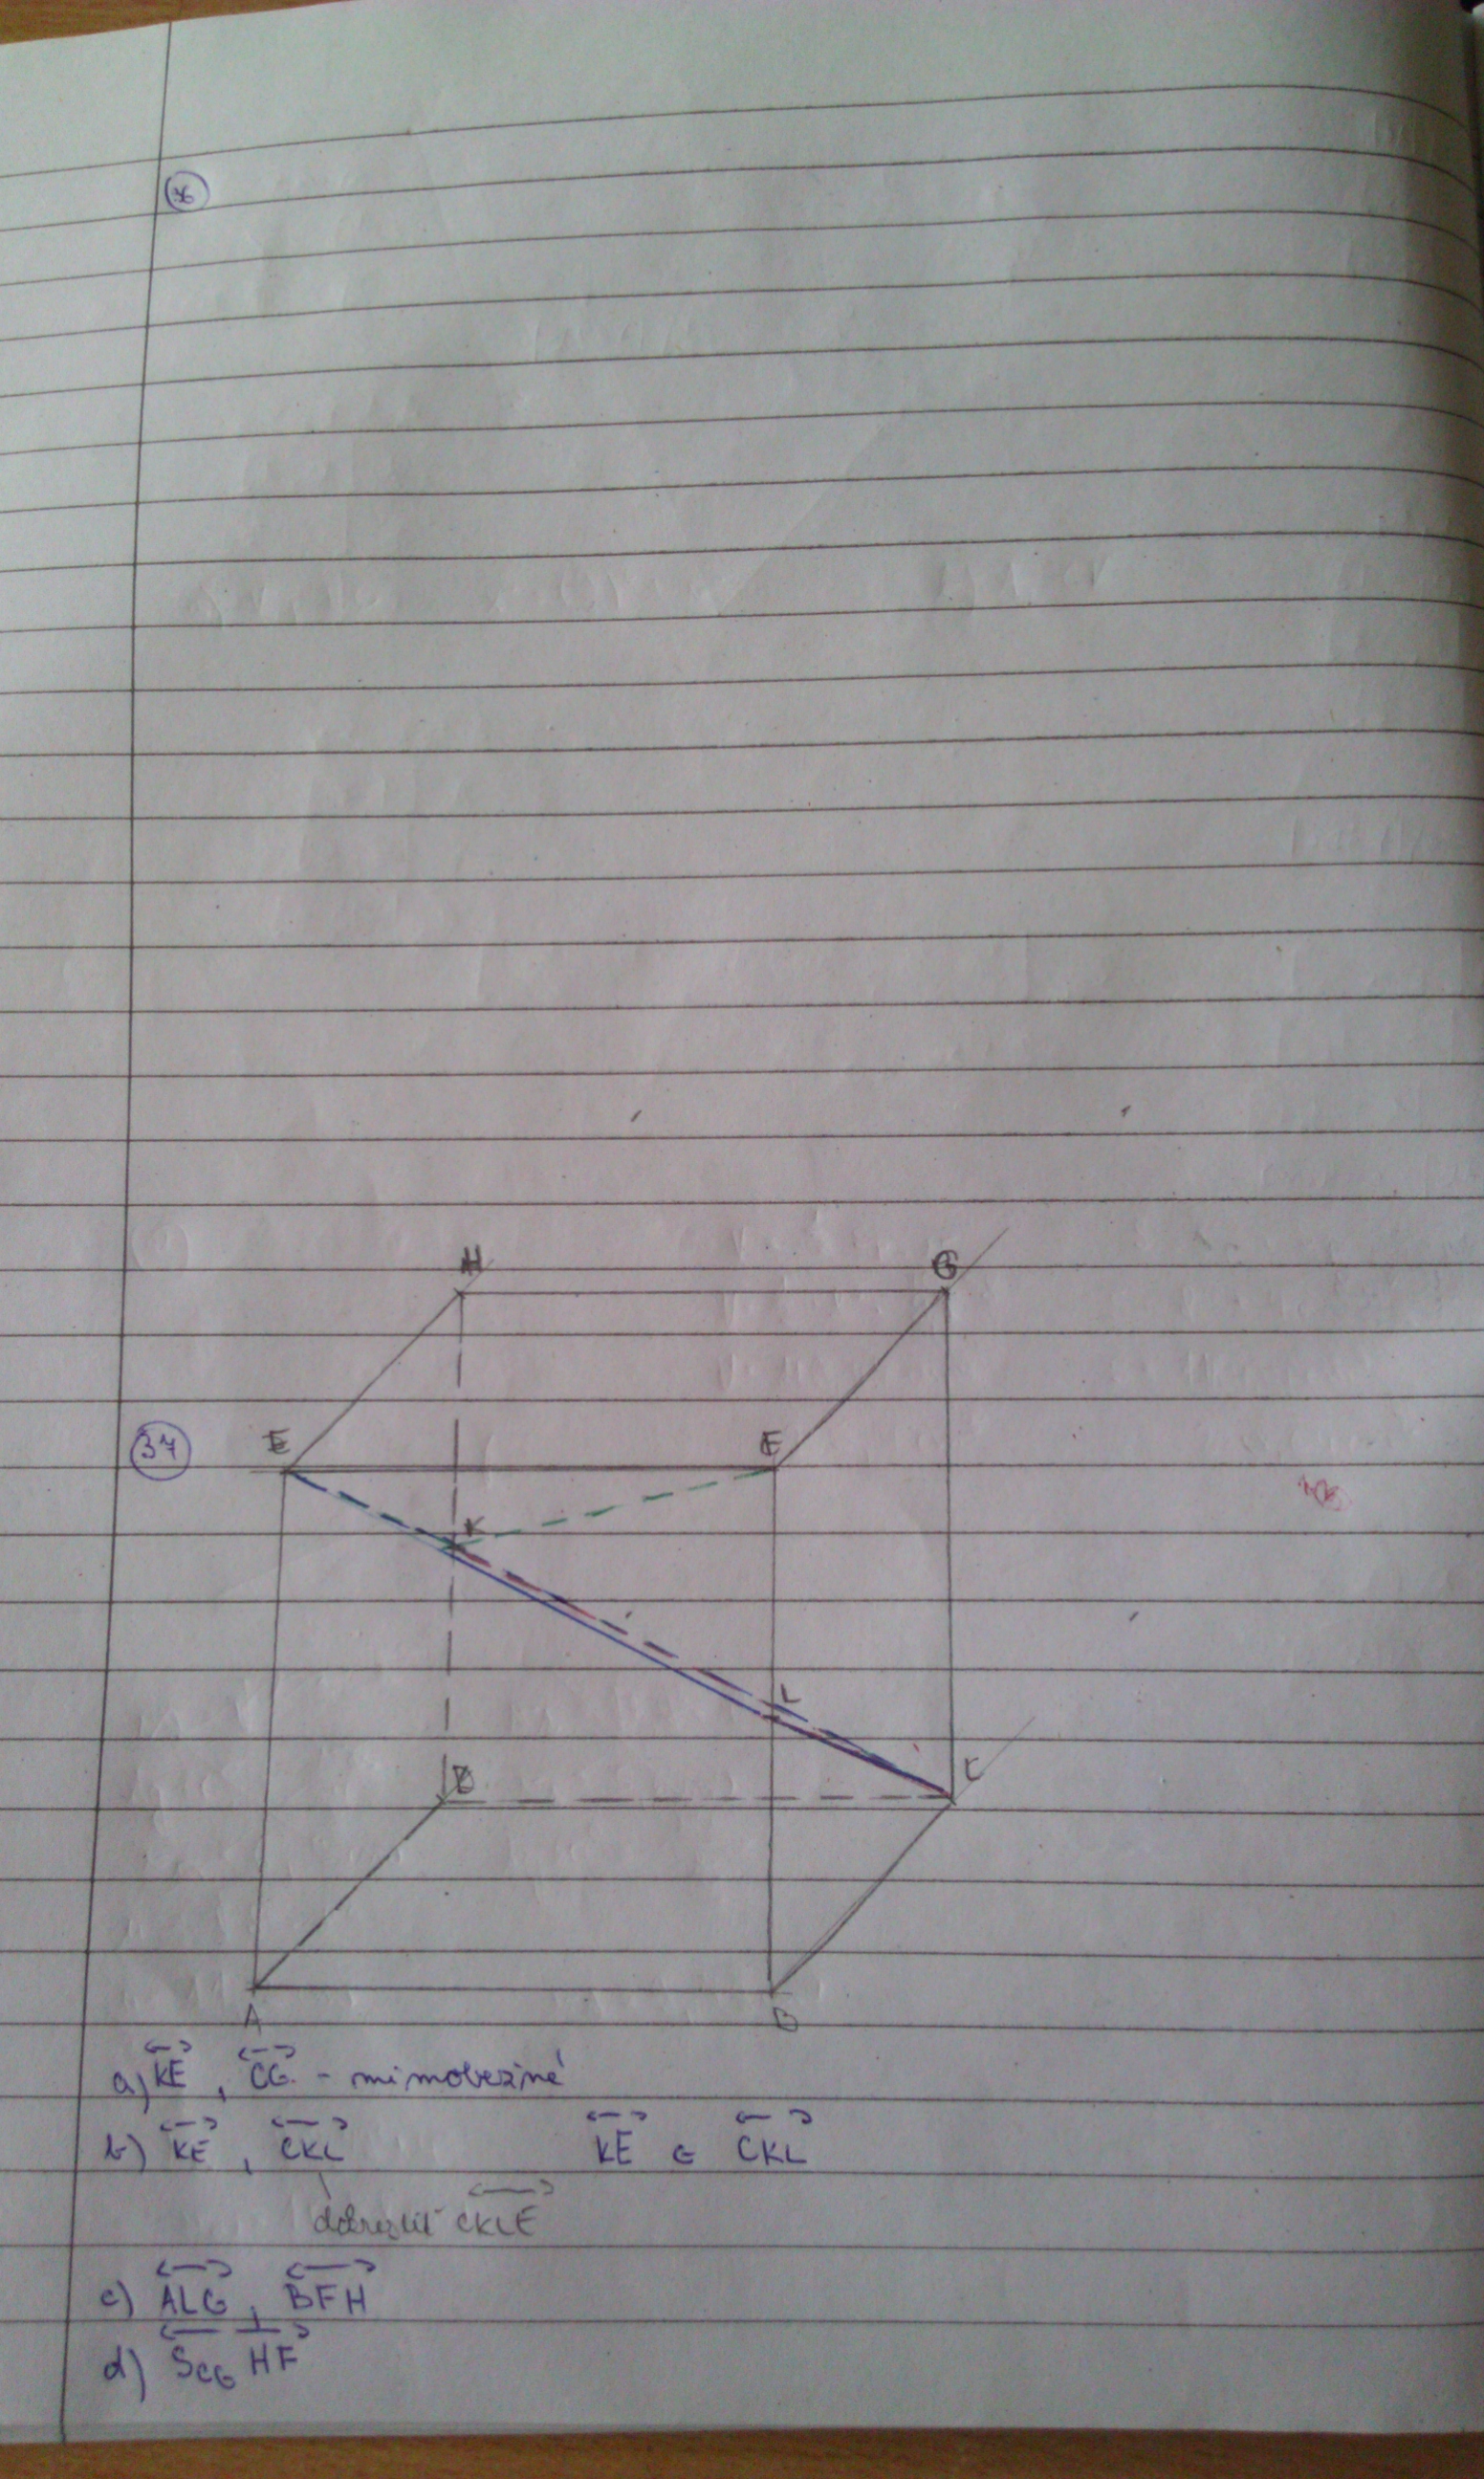 36
H G
37 E F
K
L
D C
A B
a) KE , CG - mimobežné
b) KE , CKL KE ∈ CKL
CKLE
c) ALG , BFH
d) S_CG HF